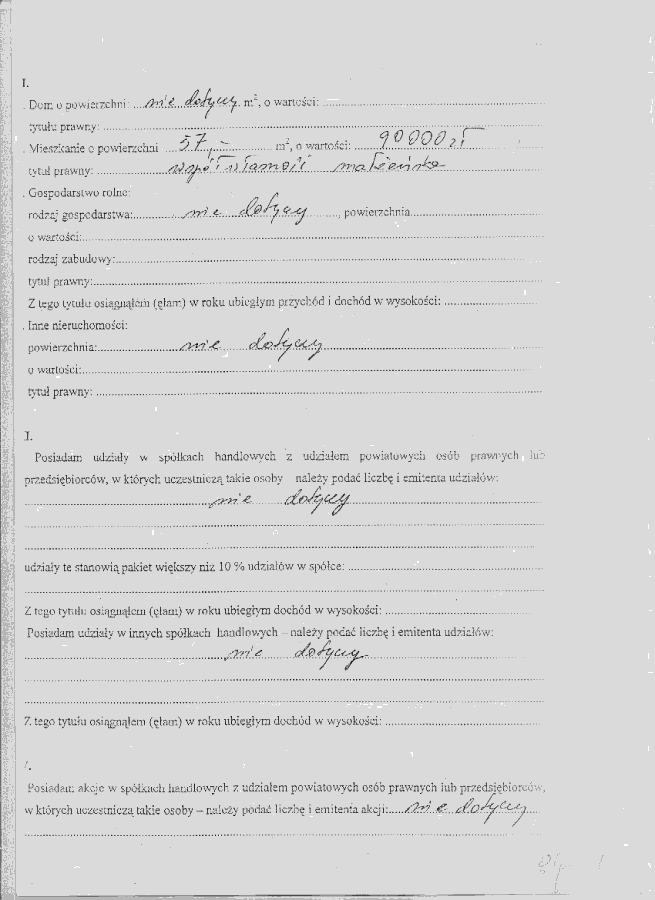 I.
. Dom o powierzchni: ...nie dotyczy. m², o wartości: ........
tytułu prawny: ........
. Mieszkanie o powierzchni ....57,-........ m², o wartości: ....90000 zł
tytuł prawny: ........współwłasność małżeńska
. Gospodarstwo rolne:
rodzaj gospodarstwa:........nie dotyczy ......, powierzchnia........
o wartości:........
rodzaj zabudowy:........
tytuł prawny:........
Z tego tytułu osiągnąłem (ęłam) w roku ubiegłym przychód i dochód w wysokości: ........
. Inne nieruchomości:
powierzchnia:........nie dotyczy........
o wartości:........
tytuł prawny: ........
I.
Posiadam udziały w spółkach handlowych z udziałem powiatowych osób prawnych lub
przedsiębiorców, w których uczestniczą takie osoby – należy podać liczbę i emitenta udziałów:
........nie dotyczy........
udziały te stanowią pakiet większy niż 10 % udziałów w spółce: ........
Z tego tytułu osiągnąłem (ęłam) w roku ubiegłym dochód w wysokości: ........
Posiadam udziały w innych spółkach handlowych – należy podać liczbę i emitenta udziałów:
........nie dotyczy........
Z tego tytułu osiągnąłem (ęłam) w roku ubiegłym dochód w wysokości: ........
Posiadam akcje w spółkach handlowych z udziałem powiatowych osób prawnych lub przedsiębiorców,
w których uczestniczą takie osoby – należy podać liczbę i emitenta akcji:....nie dotyczy....